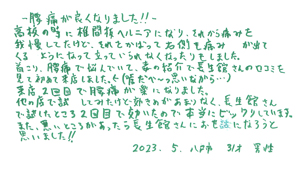 －腰痛が良くなりました!!－
高校の時に椎間板ヘルニアになり、それから痛みを
我慢してたけど、それをかばって右側も痛みが出て
くるようになって立っていられなくなったりもしました。
首こり、腰痛で悩んでいて、妻の紹介で長生館さんの口コミを
見て初めて来店しました。(嘘だべ～っ思いながら…)
来店2回目で腰痛が楽になりました。
他の店で試してみたけど効きめがあまりなく、長生館さん
で試したところ2回目で効いたので本当にビックリしています。
また、悪いところがあったら長生館さんにお世話になろうと
思いました!!
2023. 5. 八戸市 31才 男性